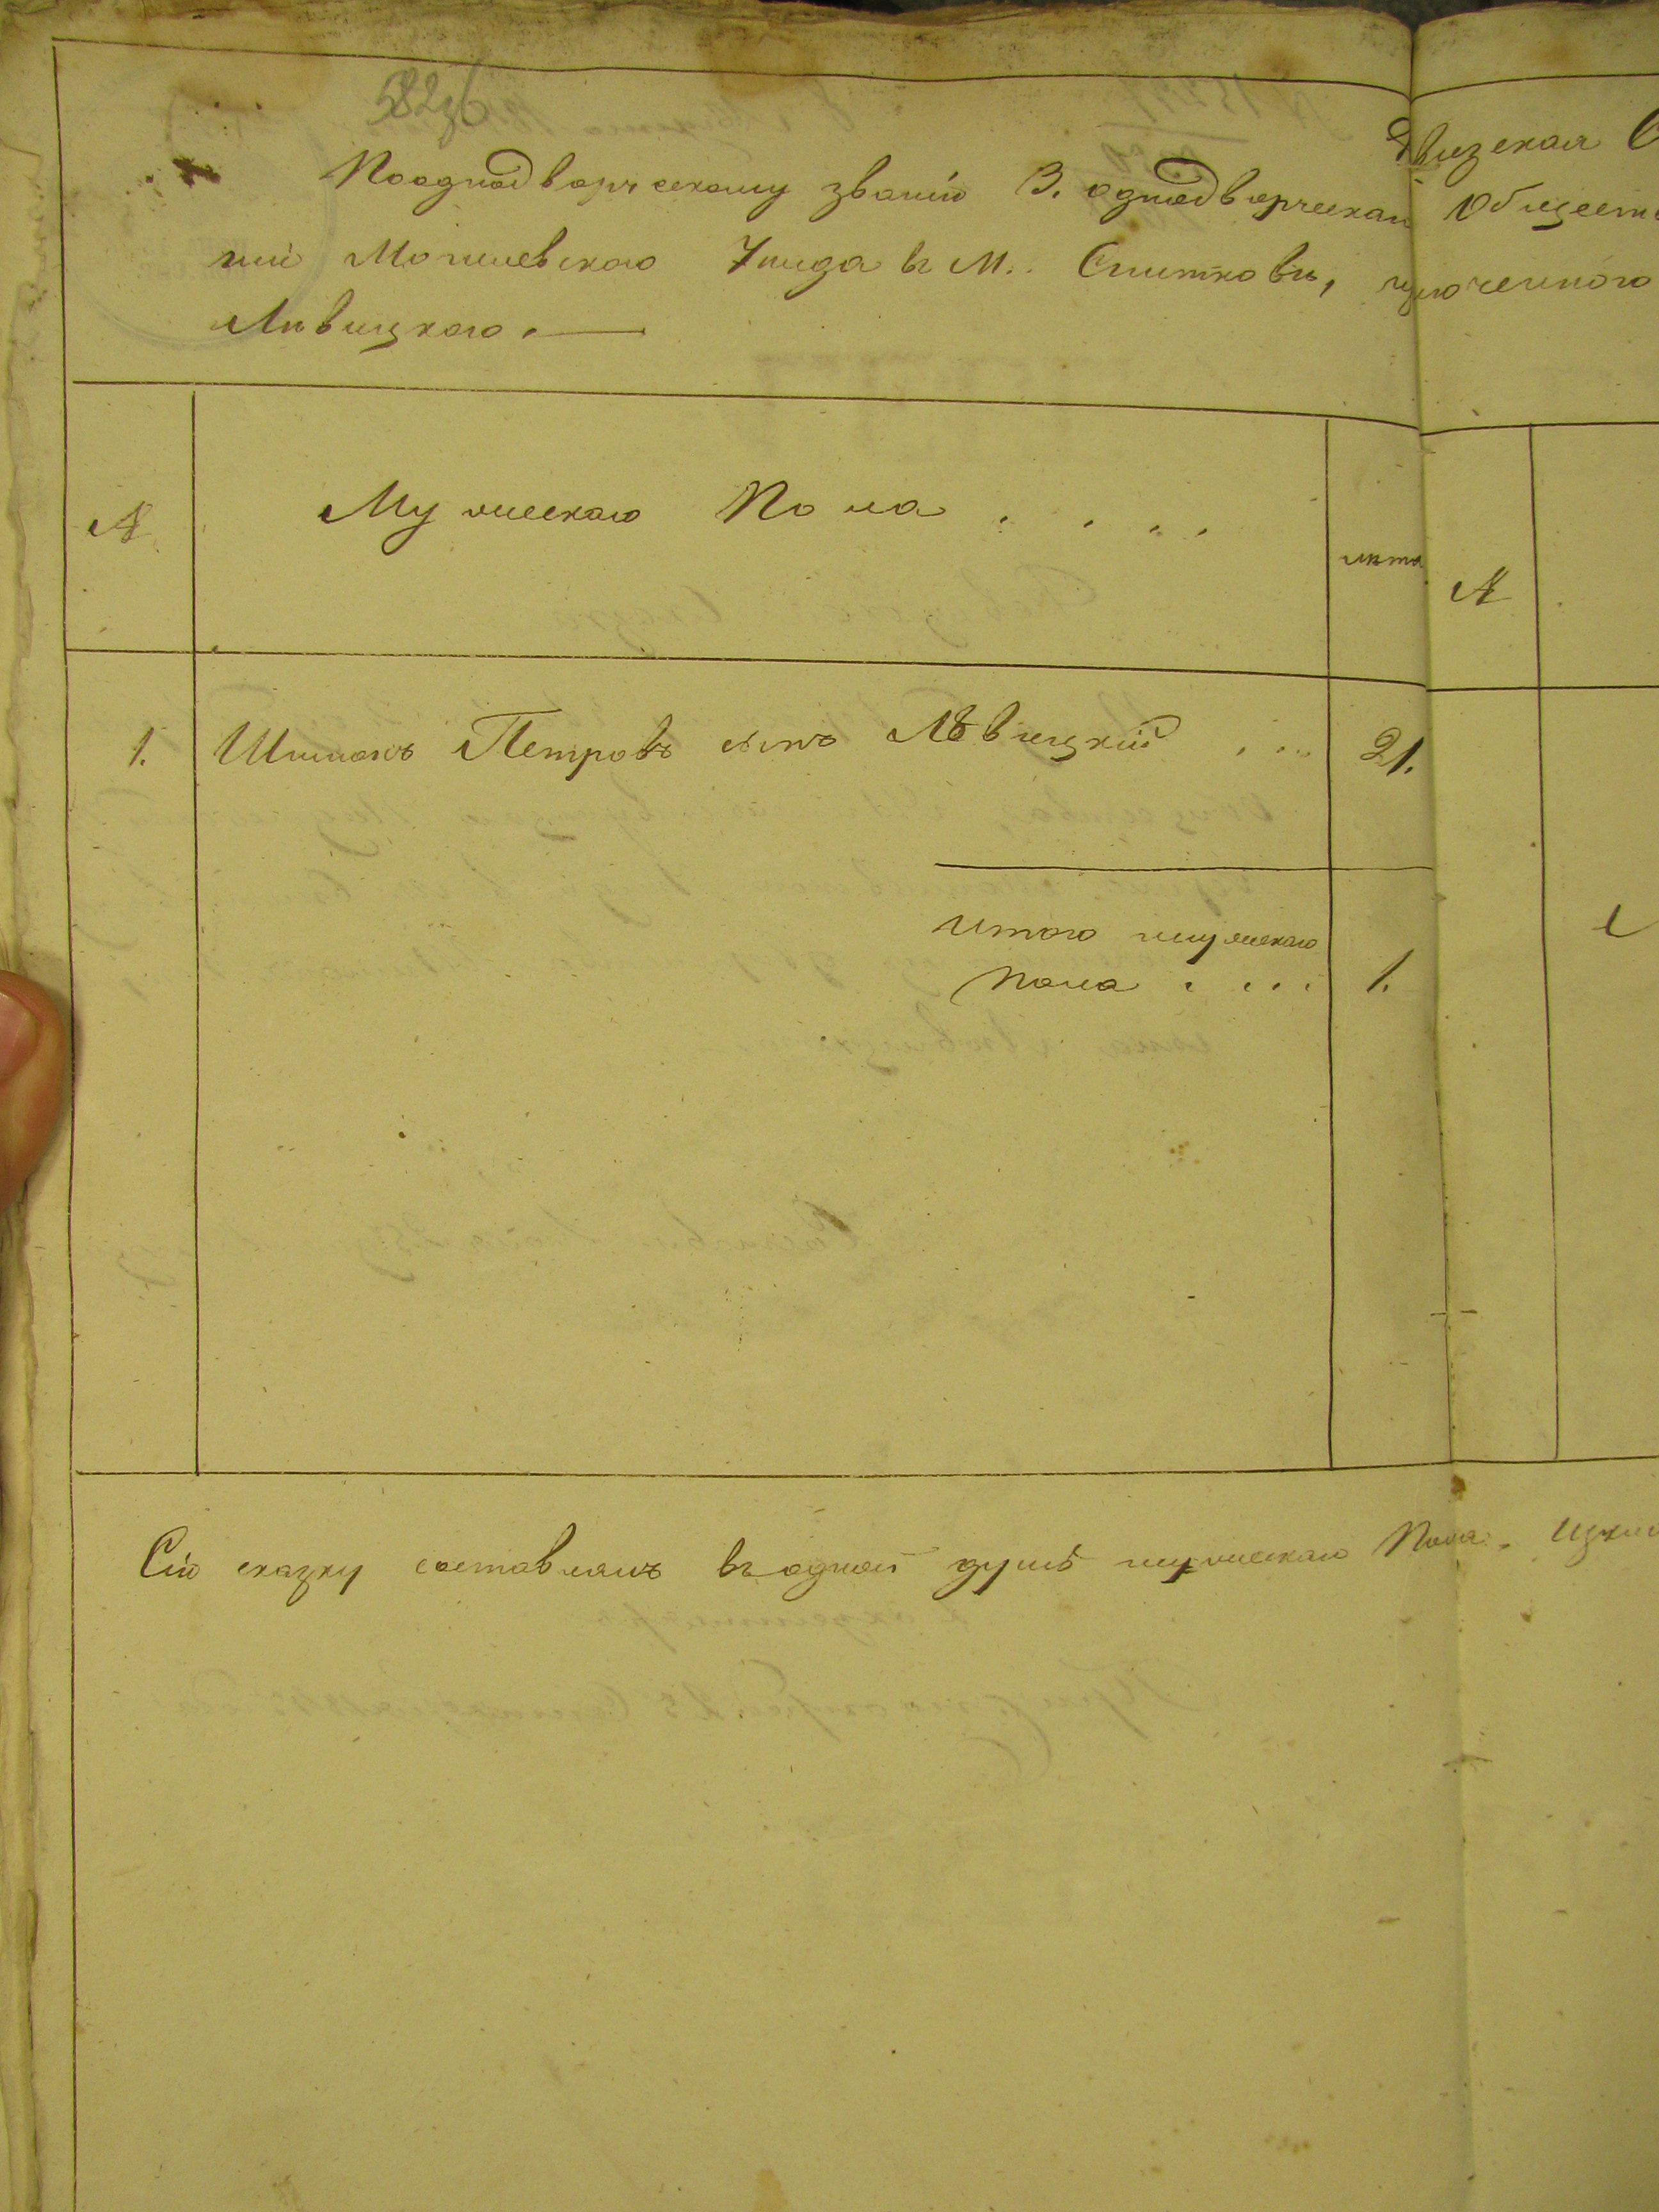 58236
Ревизская С
Пооднодворческому званию 3. однодворческаго Обществ
Могилевского Уѣзда въ М. Снитковѣ,
Лѣвицкого.
№ Мужескаго Пола . . . . лѣта №
1. Шимонъ Петровъ сынъ Лѣвицкій . . . 21.
Итого мужескаго
Пола . . . . 1.
Сію сказку составлялъ въ одной душѣ мужескаго Пола.